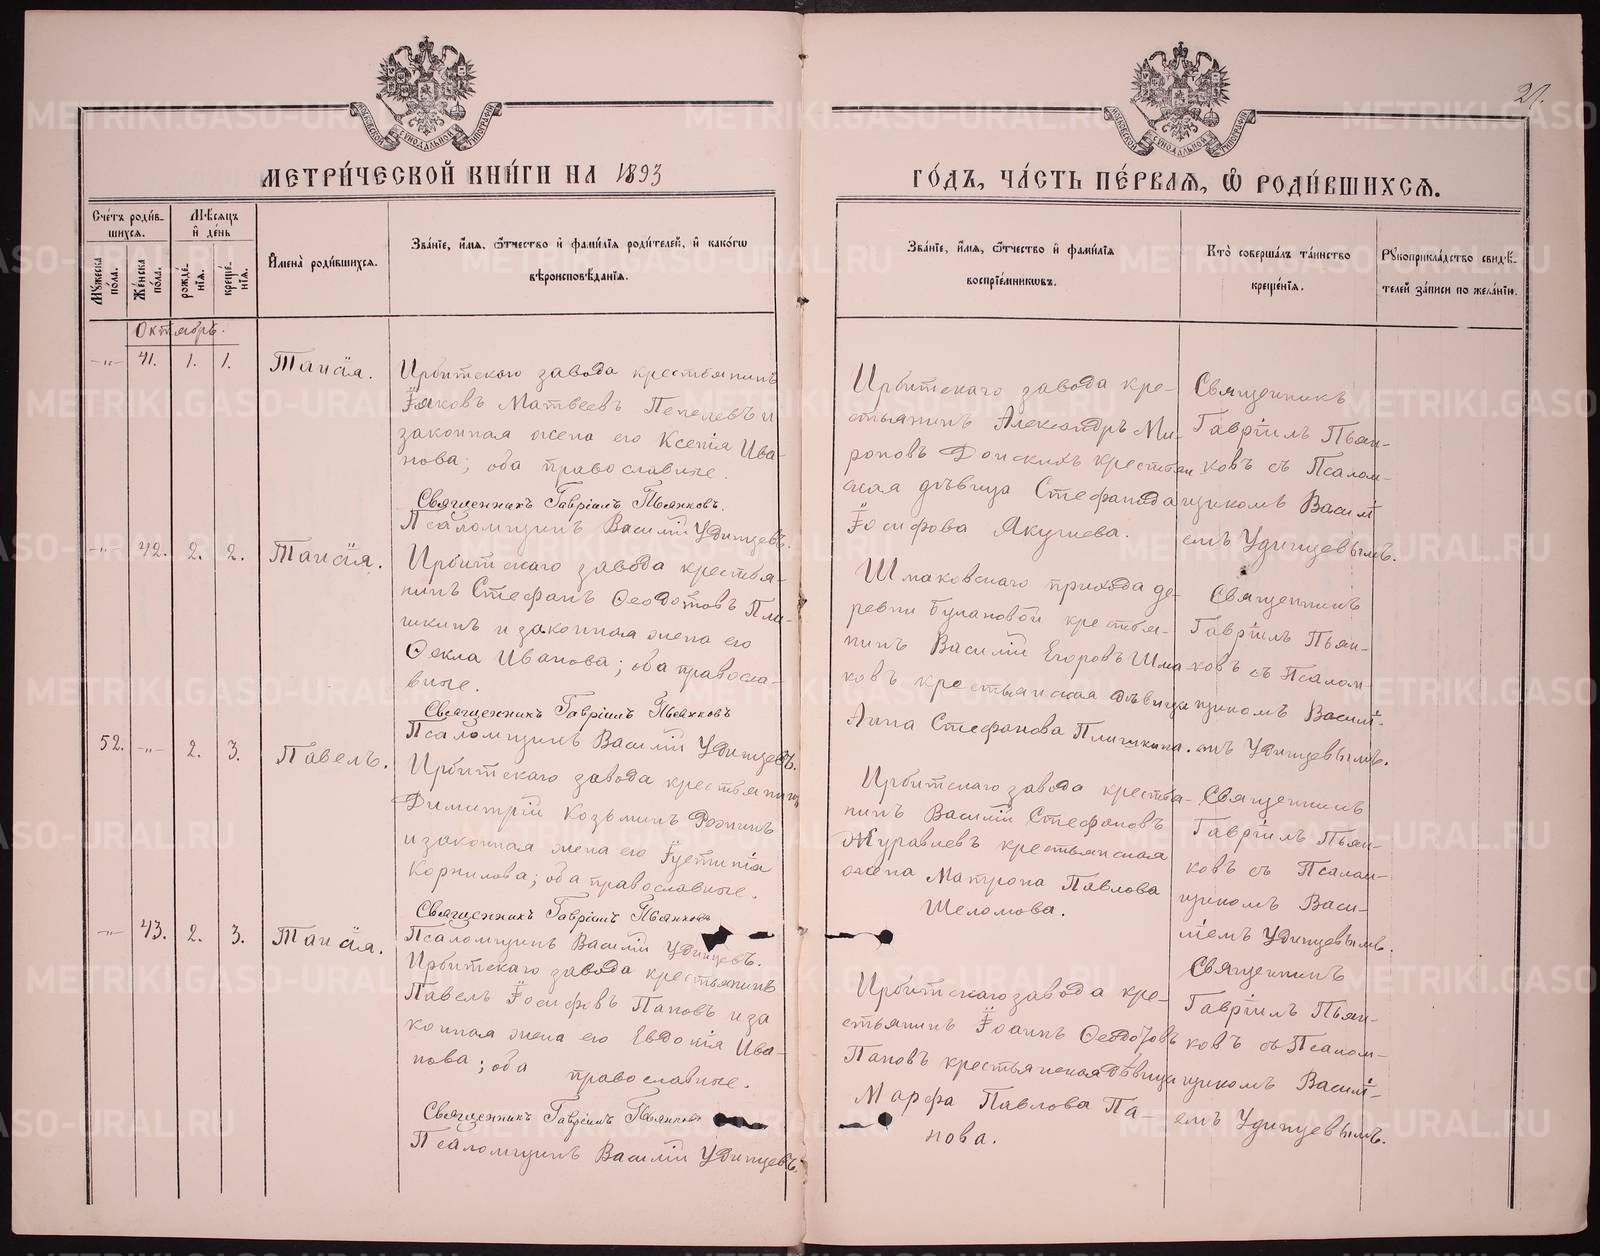 20.
МЕТРИ́ЧЕСКОЙ КНИ́ГИ НА 1893
ГО́ДЪ, ЧА́СТЬ ПЕ́РВАѦ, Ѡ҆ РОДИ́ВШИХСѦ.
Сче́тъ роди́вшихсѧ.
Мꙋжеска по́ла.
Же́нска по́ла.
Мѣ́сѧцъ и҆ де́нь
рожде́нїѧ.
креще́нїѧ.
И҆мена̀ роди́вшихсѧ.
Зва́нїе, и҆́мѧ, ѻ҆́тчество и҆ фами́лїѧ роди́телей, и҆ како́гѡ
вѣроисповѣ́данїѧ.
Зва́нїе, и҆́мѧ, ѻ҆́тчество и҆ фами́лїѧ
воспрїе́мникѡвъ.
Кто̀ соверша́лъ та́инство
креще́нїѧ.
Рꙋкоприкла́дство свидѣ́-
телей за́писи по жела́нїю.
Октябрь.
-"- 41. 1. 1.
Таисія.
Ирбитскаго завода крестьянинъ
Іяковъ Матвеевъ Пепелевъ и
законная жена его Ксенія Ива-
нова; оба православные.
Священникъ Гавріилъ Пьянковъ.
Псаломщикъ Василій Удинцевъ.
Ирбитскаго завода кре-
стьянинъ Александръ Ми-
роновъ Донскихъ крестьян
ская дѣвица Стефанида
Іосифова Якушева.
Священникъ
Гавріилъ Пьян-
ковъ съ Псалом-
щикомъ Василі
емъ Удинцевымъ.
-"- 42. 2. 2.
Таисія.
Ирбитскаго завода крестья-
нинъ Стефанъ Ѳеодотовъ Пли-
шкинъ и законная жена его
Ѳекла Иванова; оба правосла-
вные.
Священникъ Гавріилъ Пьянковъ
Псаломщикъ Василій Удинцевъ.
Шмаковскаго прихода де-
ревни Булановой крестья-
нинъ Василій Егоровъ Шма
ковъ крестьянская дѣвица
Анна Стефанова Плишкина.
Священникъ
Гавріилъ Пьян-
ковъ съ Псалом-
щикомъ Василі-
емъ Удинцевымъ.
52. -"- 2. 3.
Павелъ.
Ирбитскаго завода крестьянинъ
Димитрій Козьминъ Рожинъ
и законная жена его Іустинія
Корнилова; оба православные.
Священникъ Гавріилъ Пьянковъ
Псаломщикъ Василій Удинцевъ.
Ирбитскаго завода крестья-
нинъ Василій Стефановъ
Журавлевъ крестьянская
жена Матрона Павлова
Шеломова.
Священникъ
Гавріилъ Пьян-
ковъ съ Псалом-
щикомъ Васи-
ліемъ Удинцевымъ.
-"- 43. 2. 3.
Таисія.
Ирбитскаго завода крестьянинъ
Павелъ Іосифовъ Пановъ и за
конная жена его Евдокія Ива-
нова; оба православные.
Священникъ Гавріилъ Пьянковъ
Псаломщикъ Василій Удинцевъ.
Ирбитскаго завода кре-
стьянинъ Іоаннъ Ѳеодотовъ
Пановъ крестьянская дѣвица
Марфа Павлова Па-
нова.
Священникъ
Гавріилъ Пьян-
ковъ съ Псалом-
щикомъ Василі-
емъ Удинцевымъ.
METRIKI.GASO-URAL.RU